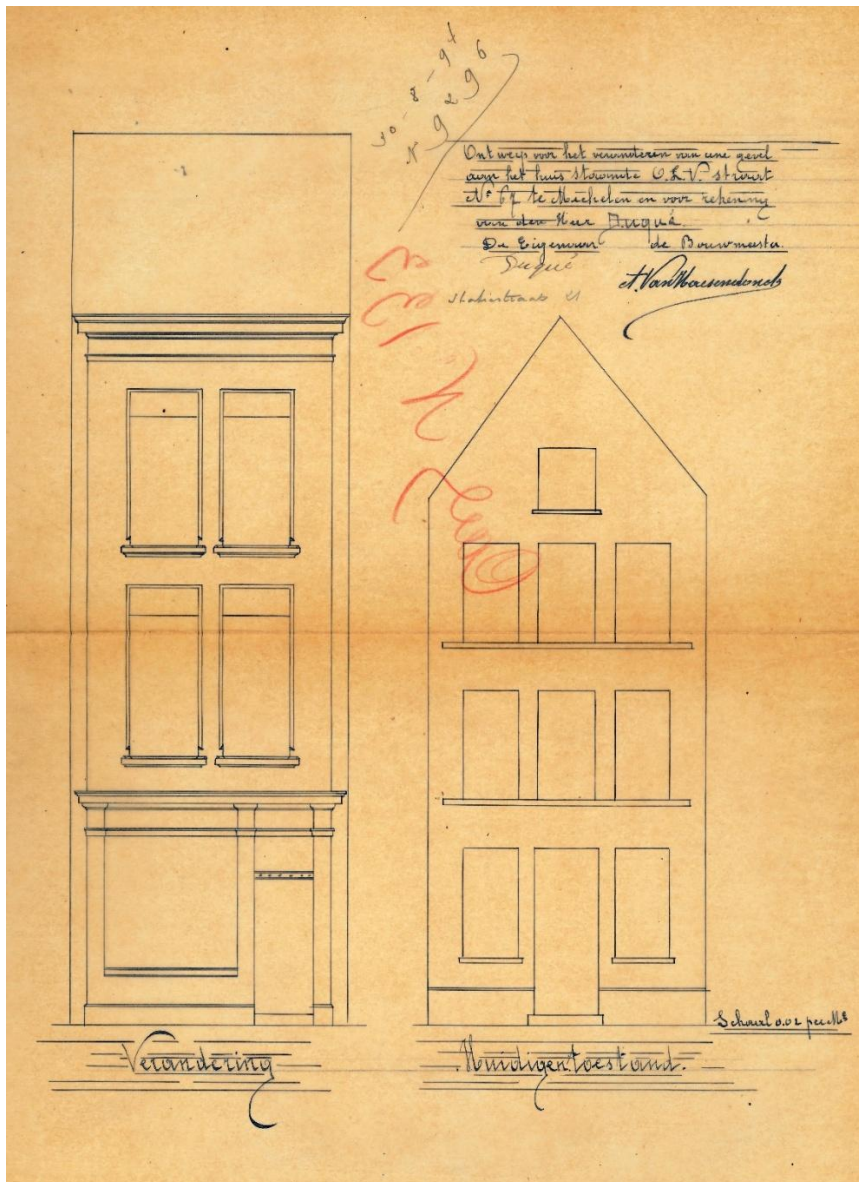 30-8-97
N 9296
Ontwerp voor het veranderen van eene gevel
aan het huis staande O.L.V. straat
N° 67 te Mechelen en voor rekening
van den Heer Duqué.
De Eigenaar de Bouwmeester.
Duqué A. Van Haesendonck
21
Schaal 0.02 per M
Verandering
Huidigen toestand.